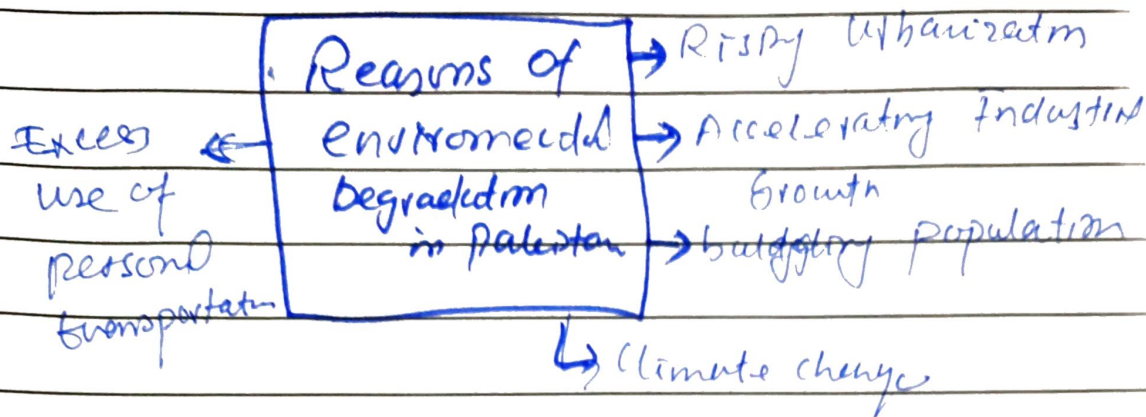 Reasons of
enviromental
Degradation
in Pakistan
Rising Urbanization
Accelerating Industrial
Growth
population
Climate change
Excess
use of
personal
transportation